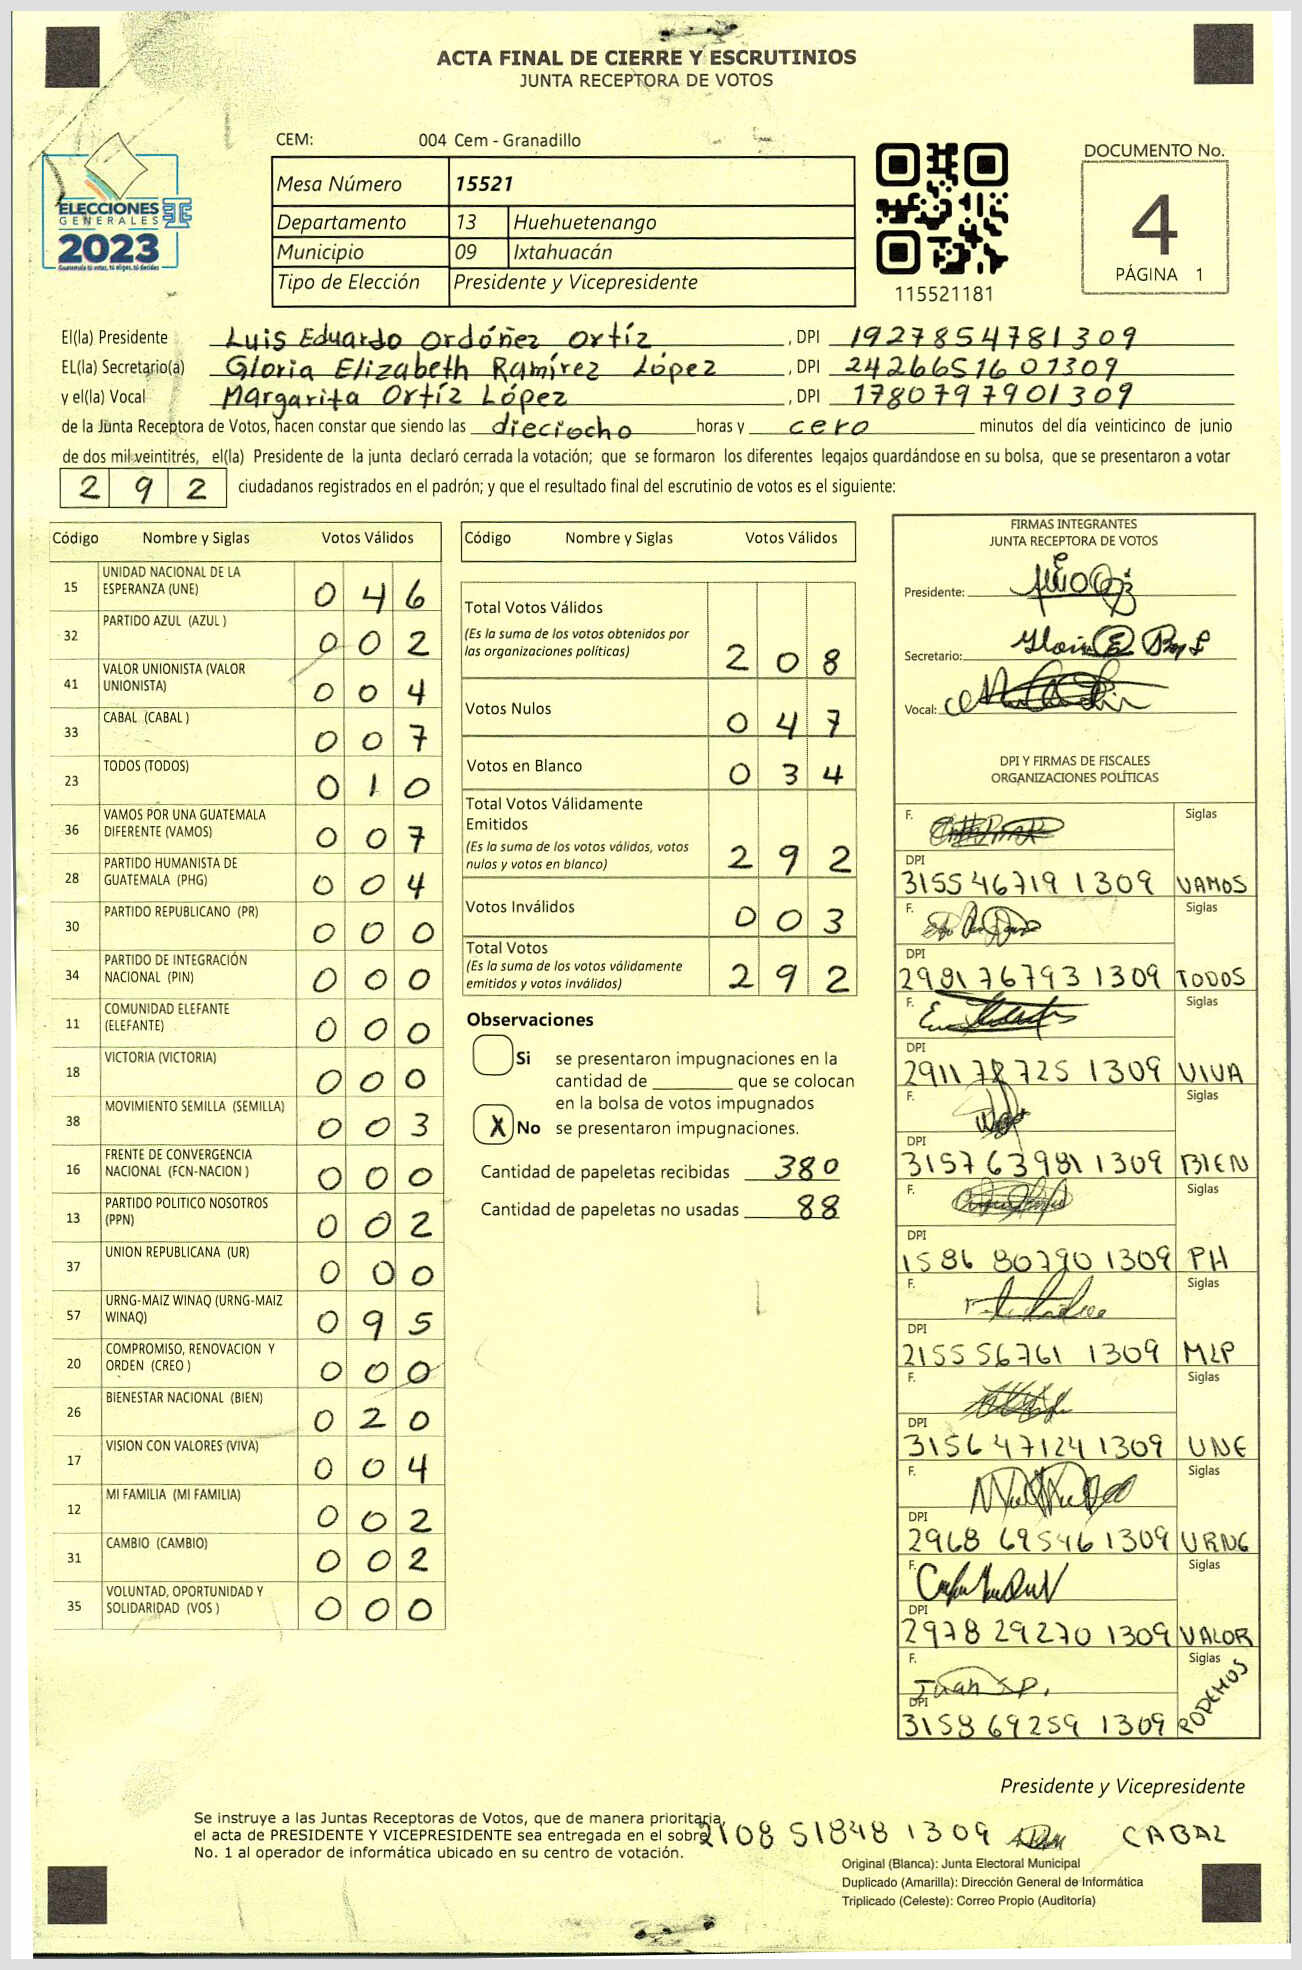 ACTA FINAL DE CIERRE Y ESCRUTINIOS
JUNTA RECEPTORA DE VOTOS
CEM: 004 Cem - Granadillo
Mesa Número 15521
Departamento 13 Huehuetenango
Municipio 09 Ixtahuacán
Tipo de Elección Presidente y Vicepresidente
ELECCIONES
GENERALES
2023
Guatemala tú votas, tú eliges, tú decides
115521181
DOCUMENTO No.
4
PÁGINA 1
El(la) Presidente Luis Eduardo Ordóñez Ortíz , DPI 1927854781309
EL(la) Secretario(a) Gloria Elizabeth Ramírez López , DPI 2426651601309
y el(la) Vocal Margarita Ortíz López , DPI 1780797901309
de la Junta Receptora de Votos, hacen constar que siendo las dieciocho horas y cero minutos del día veinticinco de junio
de dos mil veintitrés, el(la) Presidente de la junta declaró cerrada la votación; que se formaron los diferentes legajos guardándose en su bolsa, que se presentaron a votar
292 ciudadanos registrados en el padrón; y que el resultado final del escrutinio de votos es el siguiente:
Código Nombre y Siglas Votos Válidos
15 UNIDAD NACIONAL DE LA ESPERANZA (UNE) 046
32 PARTIDO AZUL (AZUL ) 002
41 VALOR UNIONISTA (VALOR UNIONISTA) 004
33 CABAL (CABAL ) 007
23 TODOS (TODOS) 010
36 VAMOS POR UNA GUATEMALA DIFERENTE (VAMOS) 007
28 PARTIDO HUMANISTA DE GUATEMALA (PHG) 004
30 PARTIDO REPUBLICANO (PR) 000
34 PARTIDO DE INTEGRACIÓN NACIONAL (PIN) 000
11 COMUNIDAD ELEFANTE (ELEFANTE) 000
18 VICTORIA (VICTORIA) 000
38 MOVIMIENTO SEMILLA (SEMILLA) 003
16 FRENTE DE CONVERGENCIA NACIONAL (FCN-NACION ) 000
13 PARTIDO POLITICO NOSOTROS (PPN) 002
37 UNION REPUBLICANA (UR) 000
57 URNG-MAIZ WINAQ (URNG-MAIZ WINAQ) 095
20 COMPROMISO, RENOVACION Y ORDEN (CREO ) 000
26 BIENESTAR NACIONAL (BIEN) 020
17 VISION CON VALORES (VIVA) 004
12 MI FAMILIA (MI FAMILIA) 002
31 CAMBIO (CAMBIO) 002
35 VOLUNTAD, OPORTUNIDAD Y SOLIDARIDAD (VOS ) 000
Código Nombre y Siglas Votos Válidos
Total Votos Válidos
(Es la suma de los votos obtenidos por
las organizaciones políticas) 208
Votos Nulos 047
Votos en Blanco 034
Total Votos Válidamente
Emitidos
(Es la suma de los votos válidos, votos
nulos y votos en blanco) 292
Votos Inválidos 003
Total Votos
(Es la suma de los votos válidamente
emitidos y votos inválidos) 292
Observaciones
Si se presentaron impugnaciones en la
cantidad de ________ que se colocan
en la bolsa de votos impugnados
X No se presentaron impugnaciones.
Cantidad de papeletas recibidas 380
Cantidad de papeletas no usadas 88
FIRMAS INTEGRANTES
JUNTA RECEPTORA DE VOTOS
Presidente:
Secretario:
Vocal:
DPI Y FIRMAS DE FISCALES
ORGANIZACIONES POLÍTICAS
F. Siglas
DPI
3155 46719 1309 VAMOS
F. Siglas
DPI
2981 76793 1309 TODOS
F. Siglas
DPI
2911 78 725 1309 VIVA
F. Siglas
DPI
3157 63981 1309 BIEN
F. Siglas
DPI
1586 80790 1309 PH
F. Siglas
DPI
2155 56761 1309 MLP
F. Siglas
DPI
3156 47124 1309 UNE
F. Siglas
DPI
2968 69546 1309 URNG
F. Siglas
DPI
2978 29270 1309 VALOR
F. Siglas
Juan S.P.
DPI
3158 69259 1309 PODEMOS
Presidente y Vicepresidente
Se instruye a las Juntas Receptoras de Votos, que de manera prioritaria,
el acta de PRESIDENTE Y VICEPRESIDENTE sea entregada en el sobre
No. 1 al operador de informática ubicado en su centro de votación.
2108 51848 1309 CABAL
Original (Blanca): Junta Electoral Municipal
Duplicado (Amarilla): Dirección General de Informática
Triplicado (Celeste): Correo Propio (Auditoría)